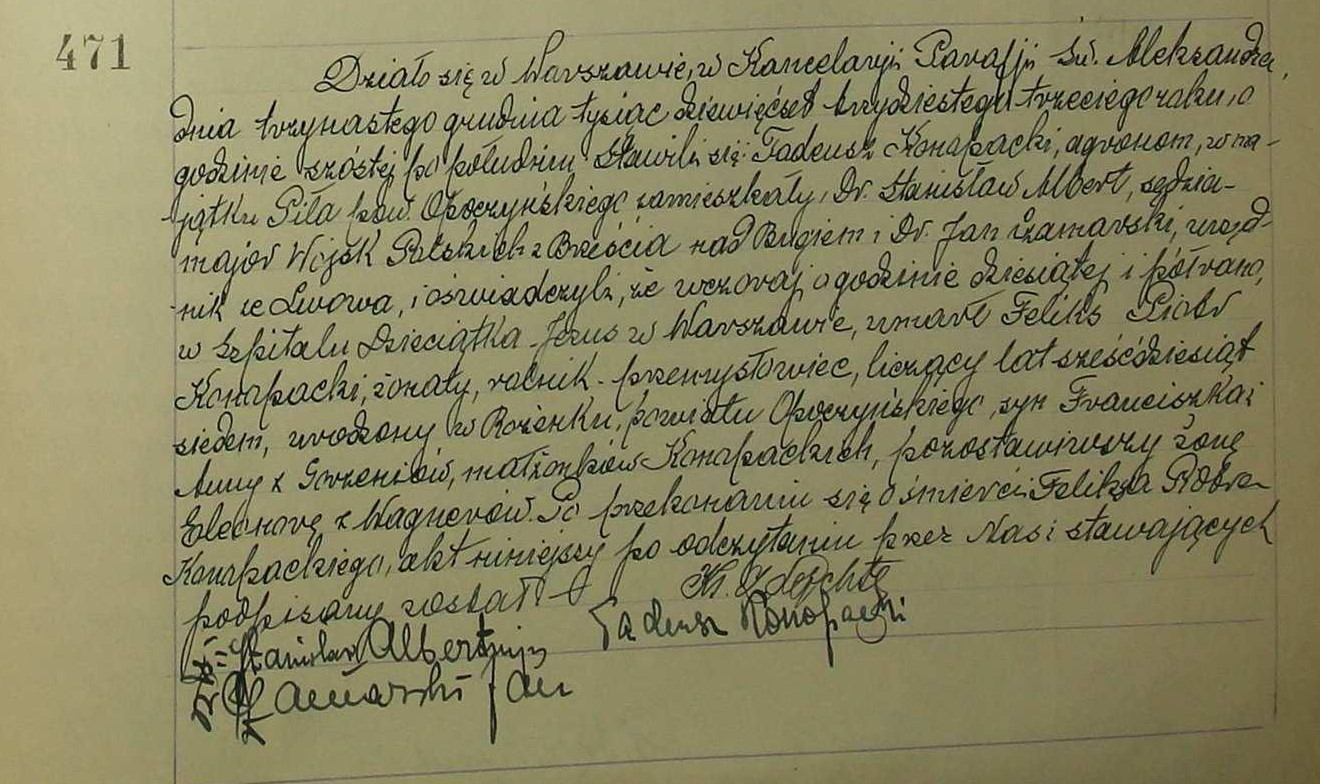 471
Działo się w Warszawie, w Kancelarji Parafji Św. Aleksandra,
dnia trzynastego grudnia tysiąc dziewięćset trzydziestego trzeciego roku, o
godzinie szóstej po południu. Stawili się: Tadeusz Konopacki, agronom, w ma-
jątku Piła pow. Opoczyńskiego zamieszkały, Dr. Stanisław Albert, sędzia-
major Wojsk Polskich z Brześcia nad Bugiem i Dr. Jan Czarnarski, urzęd-
nik ze Lwowa, i oświadczyli, że wczoraj o godzinie dziesiątej i pół rano,
w Szpitalu Dzieciątka-Jezus w Warszawie, umarł Feliks Piotr
Konopacki, żonaty, rolnik-przemysłowiec, liczący lat sześćdziesiąt
siedem, urodzony w Rożenku, powiatu Opoczyńskiego, syn Franciszka i
Anny z Gorzeniów, małżonków Konopackich, pozostawiwszy żonę
Eleonorę z Wagnerów. Po przekonaniu się o śmierci Feliksa Piotra
Konopackiego, akt niniejszy po odczytaniu przez Nas i stawających
podpisany został.
Ks.
Tadeusz Konopacki
Stanisław Albert
Jan